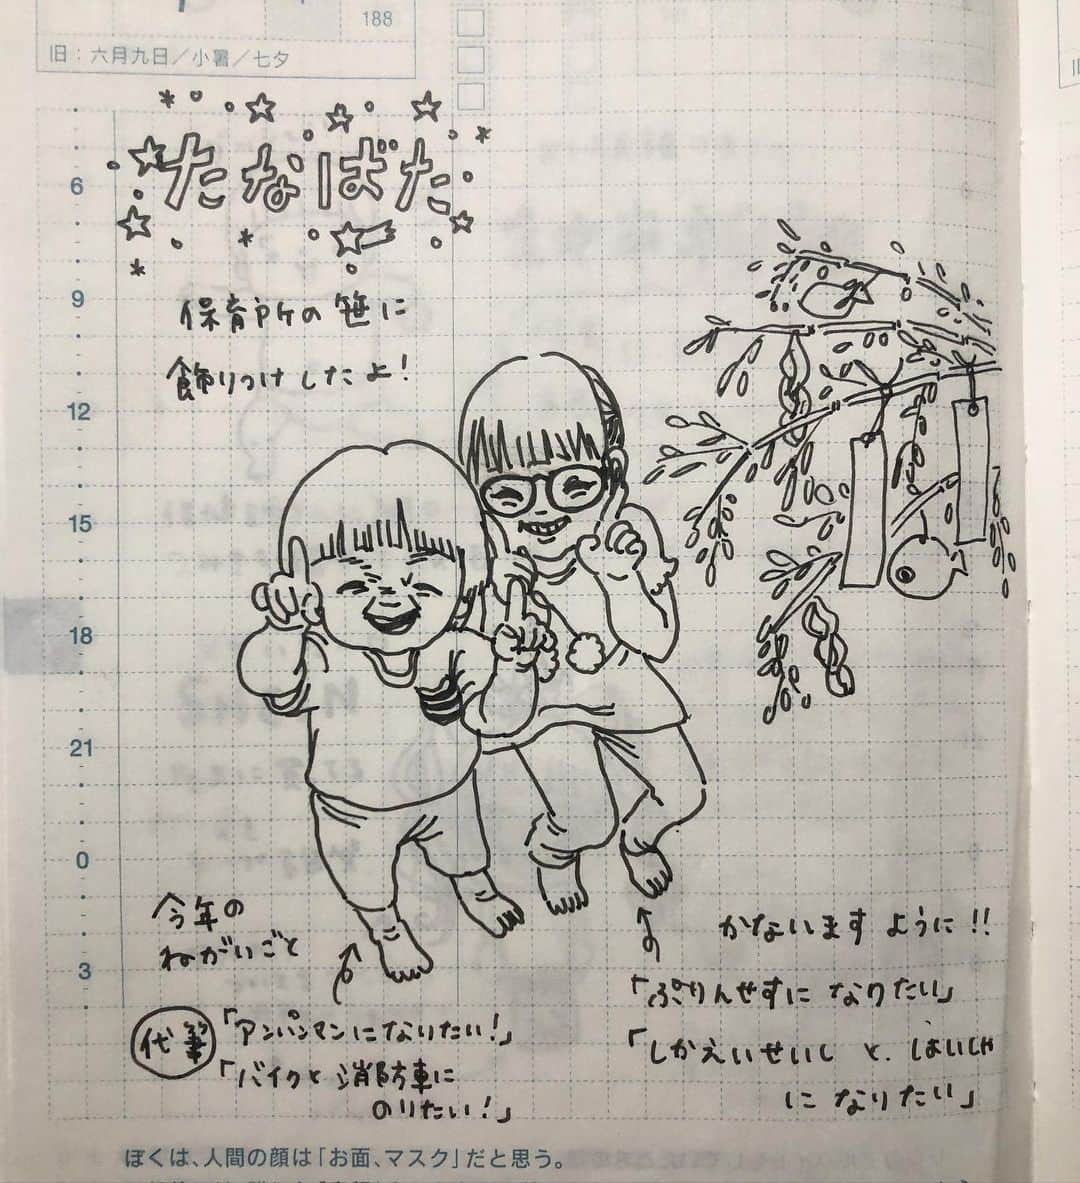 188
旧：六月九日／小暑／七夕
たなばた
保育所の笹に
飾りつけしたよ！
6
9
12
15
18
21
0
3
今年の
ねがいごと
代筆
「アンパンマンになりたい！」
「バイクと消防車に
のりたい！」
かないますように!!
「ぷりんせすになりたい」
「しかえいせいしと、はいしゃ
になりたい」
ぼくは、人間の顔は「お面、マスク」だと思う。